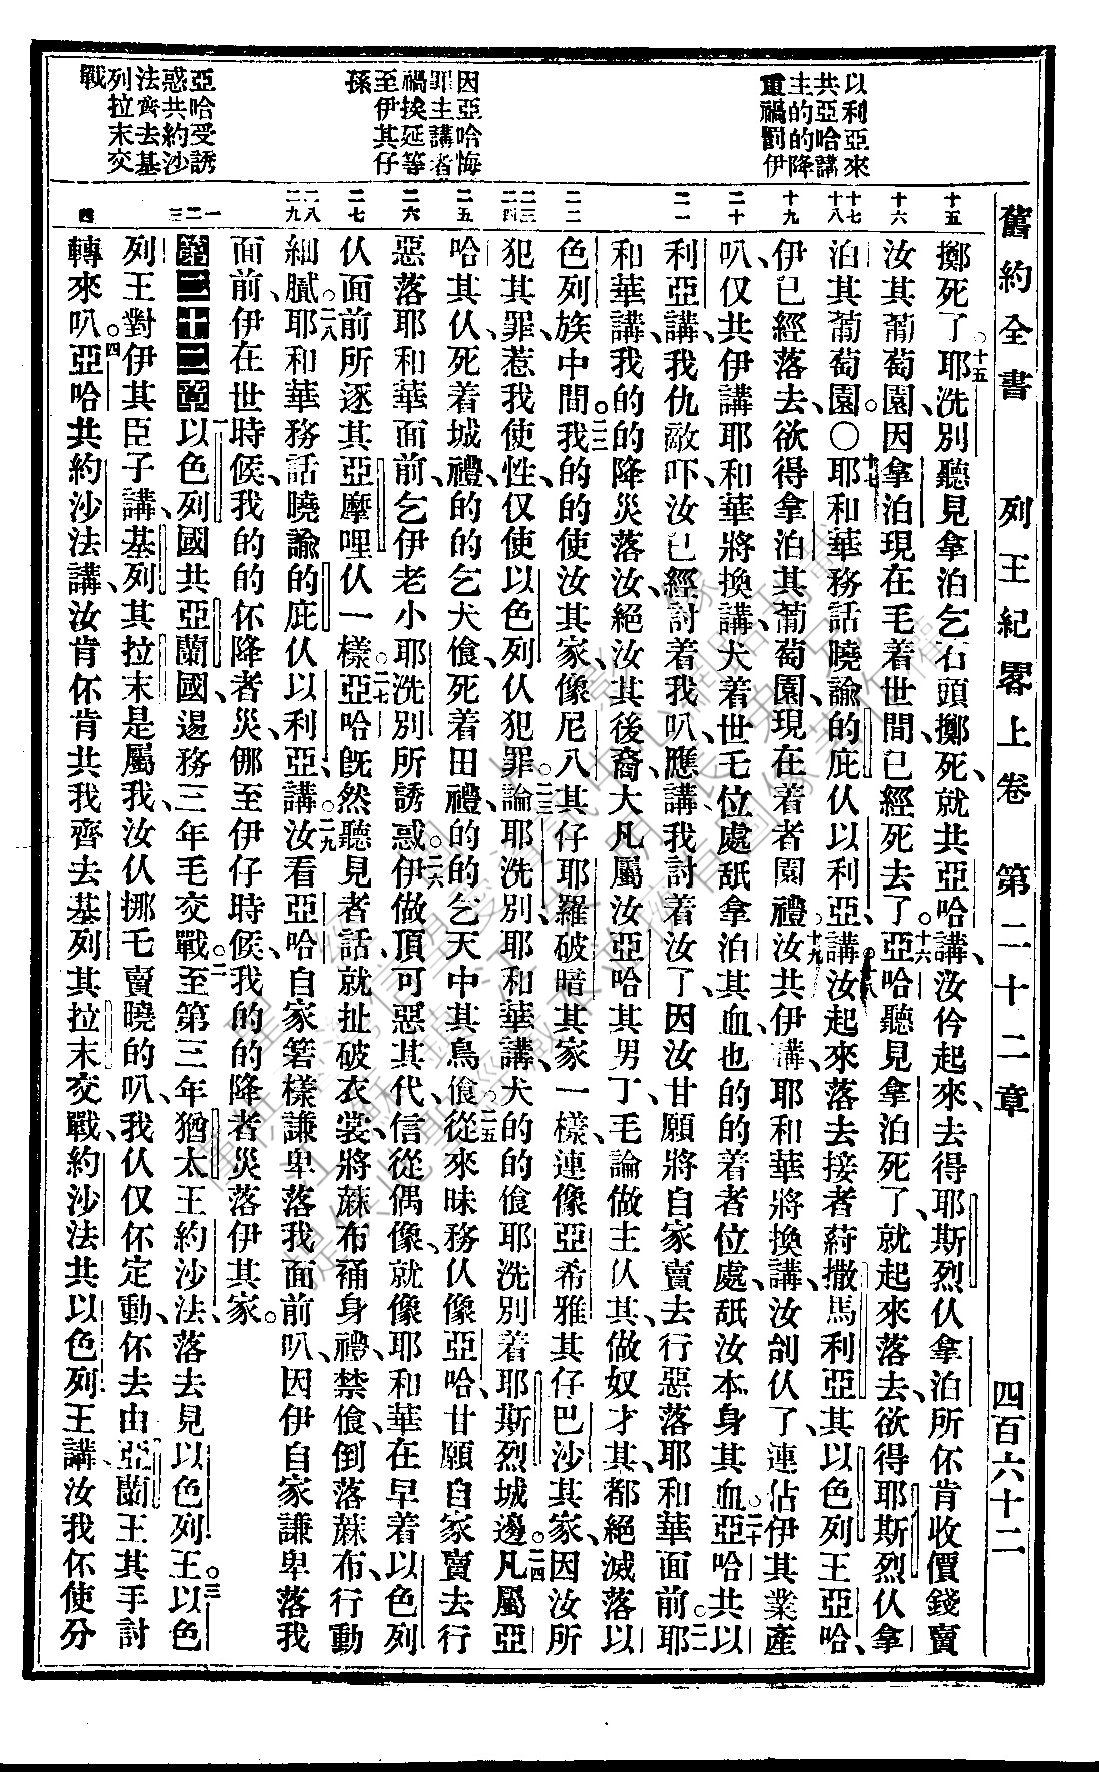 舊約全書 列王紀畧上卷 第二十二章 四百六十二
以利亞來
共亞哈講
主的的降
重禍罰伊
因亞哈悔
罪主講者
禍挨延等
至伊其仔
孫
亞哈受誘
惑共約沙
法齊去基
列拉末交
戰
十五
擲死了。十五耶洗別聽見拿泊乞石頭擲死、就共亞哈講、汝伶起來、去得耶斯烈仈拿泊所伓肯收價錢賣
十六
汝其葡萄園、因拿泊現在毛着世間、已經死去了。十六亞哈聽見拿泊死了、就起來落去、欲得耶斯烈仈拿
十七 十八
泊其葡萄園。〇十七耶和華務話曉諭的庇仈以利亞講、十八汝起來落去接者蒔撒馬利亞其以色列王亞哈、
十九
伊已經落去、欲得拿泊其葡萄園、現在着者園禮。十九汝共伊講、耶和華將換講、汝刣仈了、連佔伊其業產
二十
叭、仅共伊講、耶和華將換講、犬着世乇位處舐拿泊其血、也的的着者位處舐汝本身其血。二十亞哈共以
二一
利亞講、我仇敵吓、汝已經討着我叭、應講、我討着汝了、因汝甘願將自家賣去行惡落耶和華面前。二一耶
和華講、我的的降災落汝、絕汝其後裔、大凡屬汝亞哈其男丁、毛論做主仈其、做奴才其、都絕滅落以
二二
色列族中間。二二我的的使汝其家、像尼八其仔耶羅破暗其家一樣、連像亞希雅其仔巴沙其家、因汝所
二三 二四
犯其罪、惹我使性、仅使以色列仈犯罪。二三論耶洗別、耶和華講、犬的的飧耶洗別着耶斯烈城邊。二四凡屬亞
二五
哈其仈、死着城禮、的的乞犬飧、死着田禮、的的乞天中其鳥飧。二五從來昧務仈像亞哈、甘願自家賣去行
二六
惡落耶和華面前、乞伊老小耶洗別所誘惑。二六伊做頂可惡其代、信從偶像、就像耶和華在早着以色列
二七
仈面前所逐其亞摩哩仈一樣。二七亞哈既然聽見者話、就扯破衣裳、將蔴布補身禮、禁飧、倒落蔴布、行動
二八 二九
細膩。二八耶和華務話曉諭的庇仈以利亞講、二九汝看亞哈自家箬樣謙卑落我面前叭、因伊自家謙卑落我
面前、伊在世時候、我的的伓降者災、挪至伊仔時候、我的的降者災落伊其家。
一 二 三
第二十二章 一以色列國共亞蘭國、邊務三年毛交戰。二至第三年、猶太王約沙法、落去見以色列王。三以色
列王對伊其臣子講、基列其拉末是屬我、汝仈挪乇賣曉的叭、我仈仅伓定動、伓去由亞蘭王其手討
四
轉來叭。四亞哈共約沙法講、汝肯伓肯共我齊去基列其拉末交戰、約沙法共以色列王講、汝我伓使分